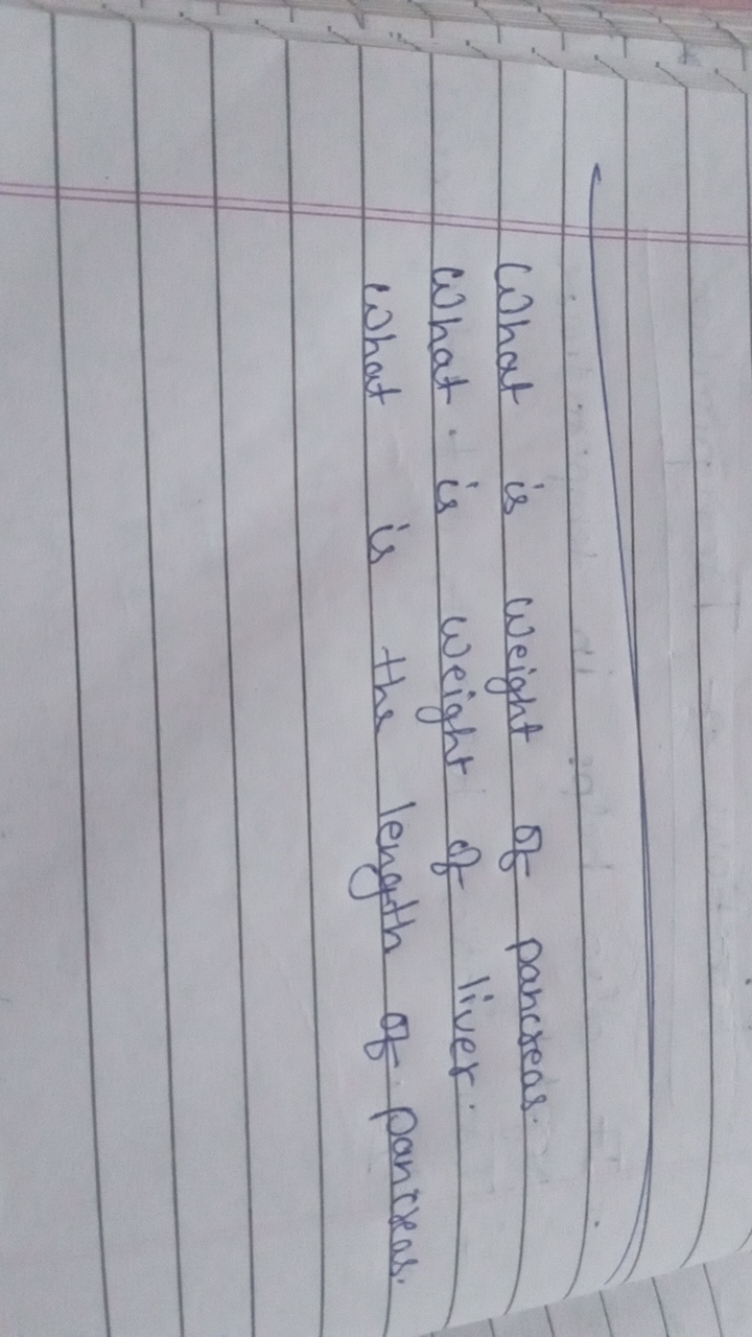 What is weight of pancreas.
What is weight of liver.
What is the length of pancreas.